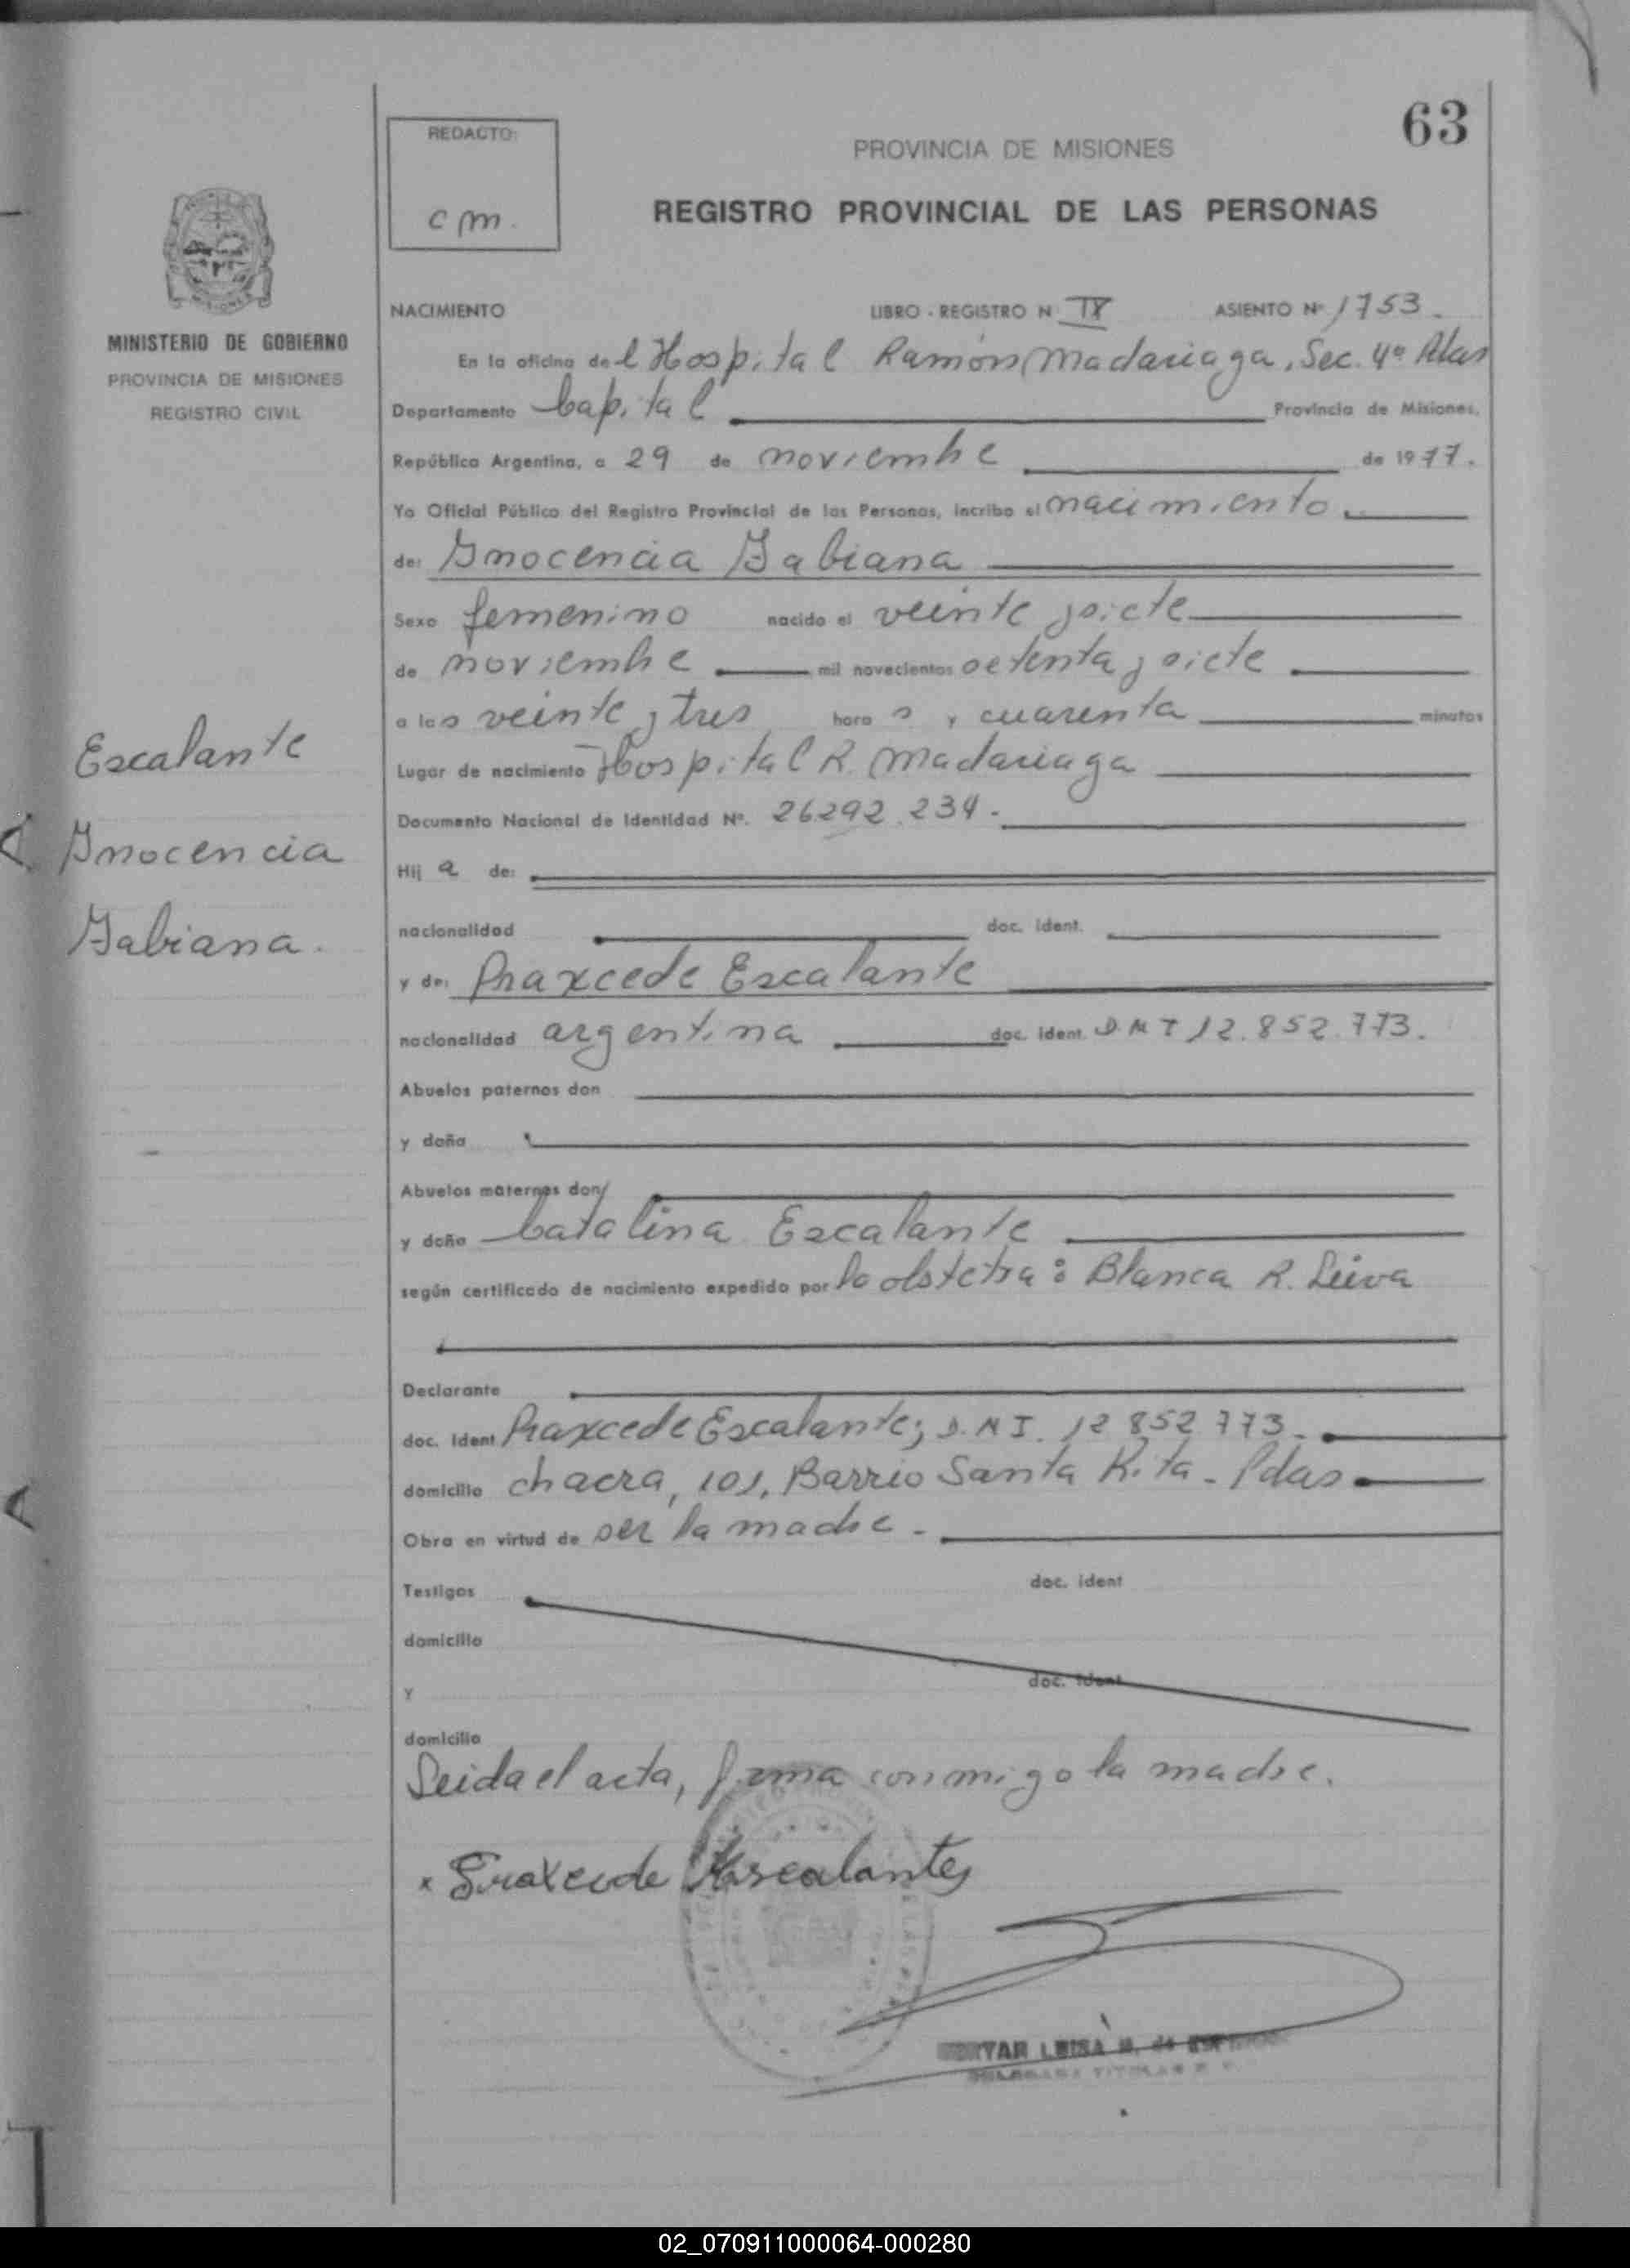 63
REDACTO:
cm.
PROVINCIA DE MISIONES
REGISTRO PROVINCIAL DE LAS PERSONAS
MINISTERIO DE GOBIERNO
PROVINCIA DE MISIONES
REGISTRO CIVIL
NACIMIENTO LIBRO - REGISTRO N IX ASIENTO Nº 1753.
En la oficina del Hospital Ramón Madariaga, Sec. 4ª Pdas
Departamento Capital Provincia de Misiones.
República Argentina, a 29 de noviembre de 1977.
Yo Oficial Público del Registro Provincial de las Personas, incribo el nacimiento
de: Inocencia Fabiana
Sexo femenino nacido el veinte y siete
de noviembre mil novecientos setenta y siete
a las veinte y tres hora s y cuarenta minutos
Lugar de nacimiento Hospital R. Madariaga
Documento Nacional de Identidad Nº. 26.292.234.
Hij a de:
nacionalidad doc. ident.
y de: Praxcede Escalante
nacionalidad argentina doc. ident. D.N.I 12.852.773.
Abuelos paternos don
y doña
Abuelos maternos don
y doña Catalina Escalante
según certificado de nacimiento expedido por la obstetra: Blanca R. Leiva
Declarante
doc. ident Praxcede Escalante; D.N.I. 12 852 773.
domicilio chacra, 101, Barrio Santa Rita - Pdas
Obra en virtud de ser la madre.
Testigos doc. ident
domicilio
Y doc. ident
domicilio
Leida el acta, firma conmigo la madre.
Escalante
Inocencia
Fabiana.
LUISA M. de
02_070911000064-000280